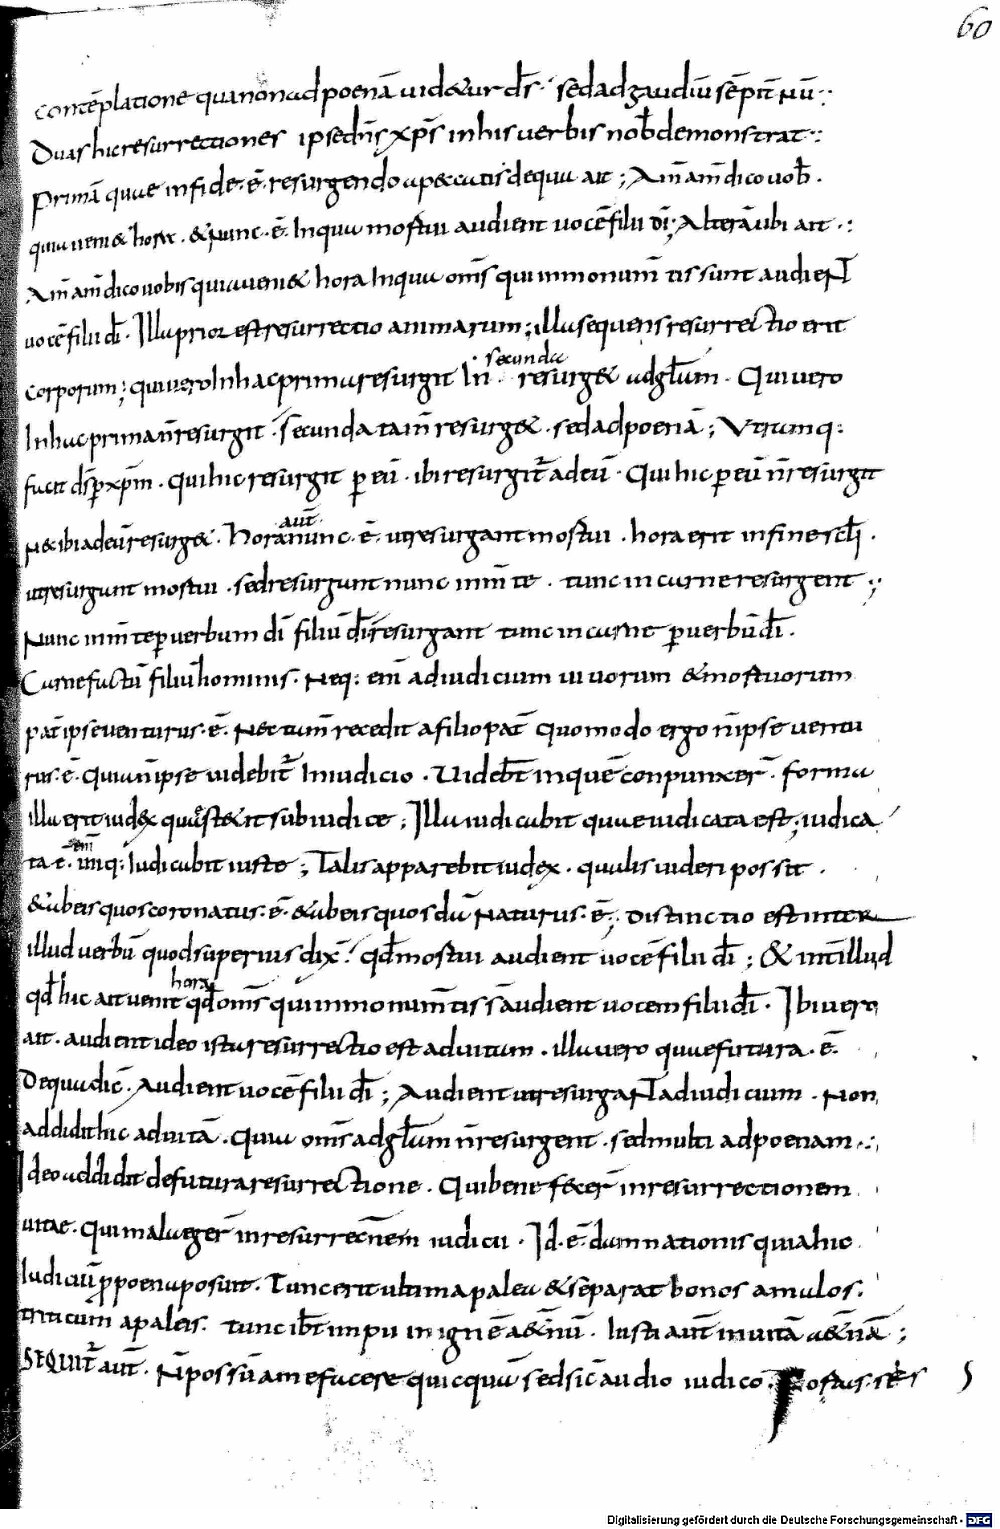 60
contēplatione qua non ad poenā uidetur d̄s · sed ad gaudiū sēpit̄nū ·:
Duas hic resurrectiones ipse dn̄s xp̄s in his uerbis nob̄ demonstrat ·:
Primā quae in fide · ē · resurgendo a peccatis de qua ait ; Am̄ am̄ dico uob̄ ·
quia uenit hora · & nunc · ē · In qua mortui audient uocē filii dī ; Alterā ubi ait ·:
Am̄ am̄ dico uobis quia uenit hora In qua om̄s qui in monum̄tis sunt audient
uocē filii dī · Illa prior est resurrectio animarum ; illa sequens resurrectio erit
corporum ; qui uero In hac prima resurgit In secunda resurget ad gl̄am · Qui uero
In hac prima n̄ resurgit · secunda tam̄ resurget · sed ad poenā ; Utrumq:
facit d̄s p xp̄m · qui hic resurgit p eū · ibi resurgit̄ ad eū · Qui hic p eū n̄ resurgit
nec ibi ad eū resurget · Hora aut̄ nunc · ē · ut resurgant mortui · hora erit in fine scl̄i ·
ut resurgant mortui · sed resurgunt nunc in m̄te · tunc in carne resurgent ·;
Nunc in m̄te per uerbum dī filiū dī resurgant tunc in carne p uerbū dī ·
Carne factū filiū hominis · Neq: enī ad iudicium uiuorum & mortuorum
pat̄ ipse uenturus · ē · Nec tam̄ recedit a filio pat̄ quomodo ergo n̄ ipse ventu
rus · ē · quia n̄ ipse uidebit̄ In iudicio · Uidebt̄ in quē conpunxer̄ · forma
illa erit iudex quae stetit sub iudice ; Illa iudicabit quae iudicata est ; iudica
ta · ē · enī iniq: Iudicabit iuste ; Talis apparebit iudex · qualis uideri possit ·
& ab eis quos coronatus · ē · & ab eis quos dāNaturus · ē · ; Distinctio est inter
illud uerbū quod superius dix̄ · qd̄ mortui audient uocē filii dī ; & int̄ illud
qd̄ hic ait uenit hora qd̄ om̄s qui in monum̄tis s̄ audient uocem filii dī · Ibi uero
ait · audient ideo ista resurrectio est ad uitam · illa uero quae futura · ē ·
De qua dic̄ · Audient uocē filii dī ; Audient ut resurgant ad iudicium · Non
addidit hic ad uitā · Quia om̄s ad gl̄am n̄ resurgent · sed multi ad poenam ·:
Ideo addidit de futura resurrectione · Qui bene fecer̄ in resurrectionem
uitae · Qui mala eger̄ in resurrecn̄em iudicii · Id · ē · damnationis quia hic
Iudiciū p poena posuit · Tunc erit ultima palea & separat bonos a malos ·
triticum a paleis · tunc ibt̄ impii in ignē aet̄nū · Iusti aut̄ in uitā aet̄nā ;
Sequit̄ aut̄ · N̄ possū a me facere quicquā sed sic̄ audio iudico ·